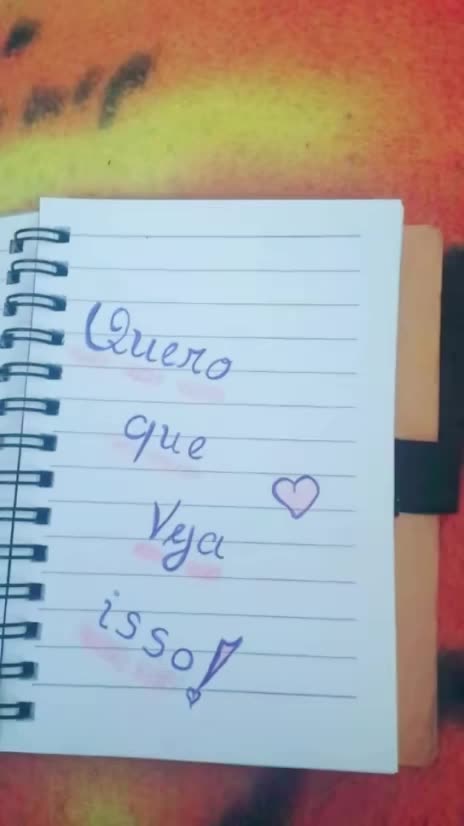 Quero
que
Veja
isso!